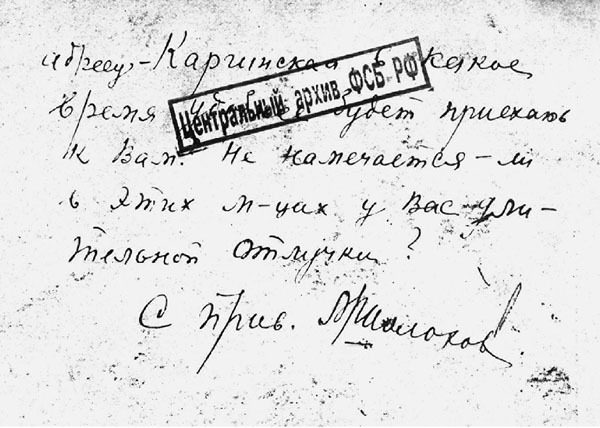 адрес-Каргинская в какое
Центральный архив ФСБ РФ
время удобно будет приехать
к Вам? Не намечается-ли
в этих м-цах у Вас дли-
тельной отлучки?
С прив. М Шолохов